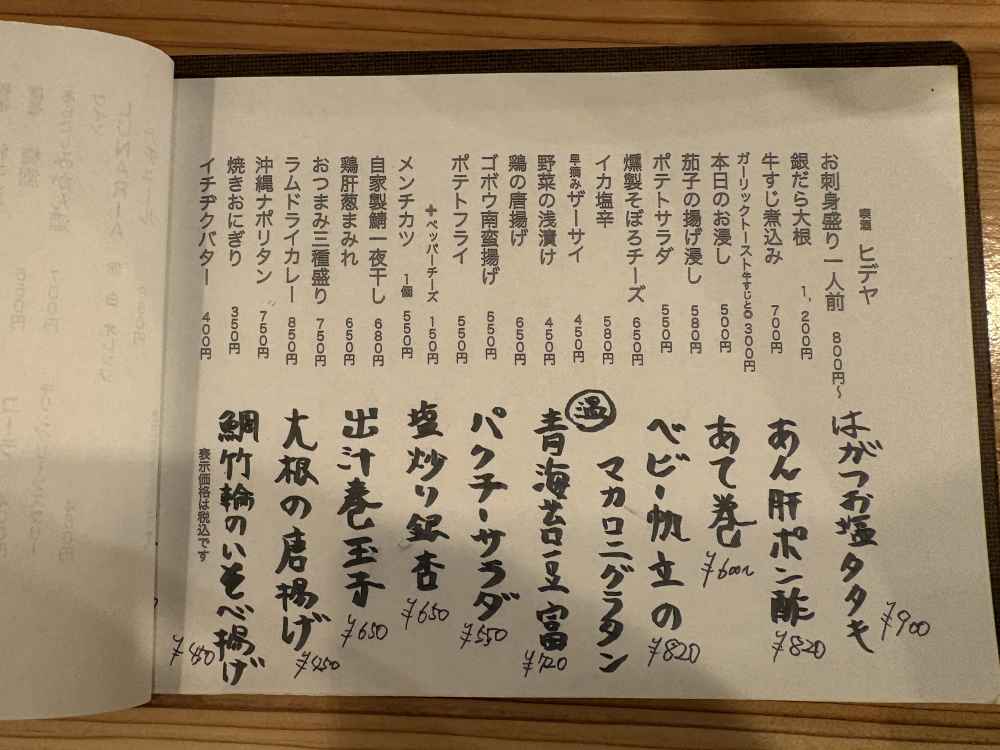 喪酒 ヒデヤ
お刺身盛り一人前 800円〜
銀だら大根 1,200円
牛すじ煮込み 700円
ガーリックトースト牛すじとの 300円
本日のお浸し 500円
茄子の揚げ浸し 580円
ポテトサラダ 550円
燻製そぼろチーズ 650円
イカ塩辛 580円
早摘みザーサイ 450円
野菜の浅漬け 450円
鶏の唐揚げ 650円
ゴボウ南蛮揚げ 650円
ポテトフライ 550円
+ペッパーチーズ 150円
メンチカツ 1個 550円
自家製鯖一夜干し 680円
鶏肝葱まみれ 650円
おつまみ三種盛り 750円
ラムドライカレー 850円
沖縄ナポリタン 750円
焼きおにぎり 350円
イチヂクバター 400円
はがつお塩タタキ ¥900
あん肝ポン酢 ¥820
あて巻 ¥600〜
ベビー帆立の ¥820
マカロニグラタン
温
青海苔豆富 ¥720
パクチーサラダ ¥550
塩炒り銀杏 ¥650
出汁巻玉子 ¥650
大根の唐揚げ ¥450
鯛竹輪のいそべ揚げ ¥450
表示価格は税込です